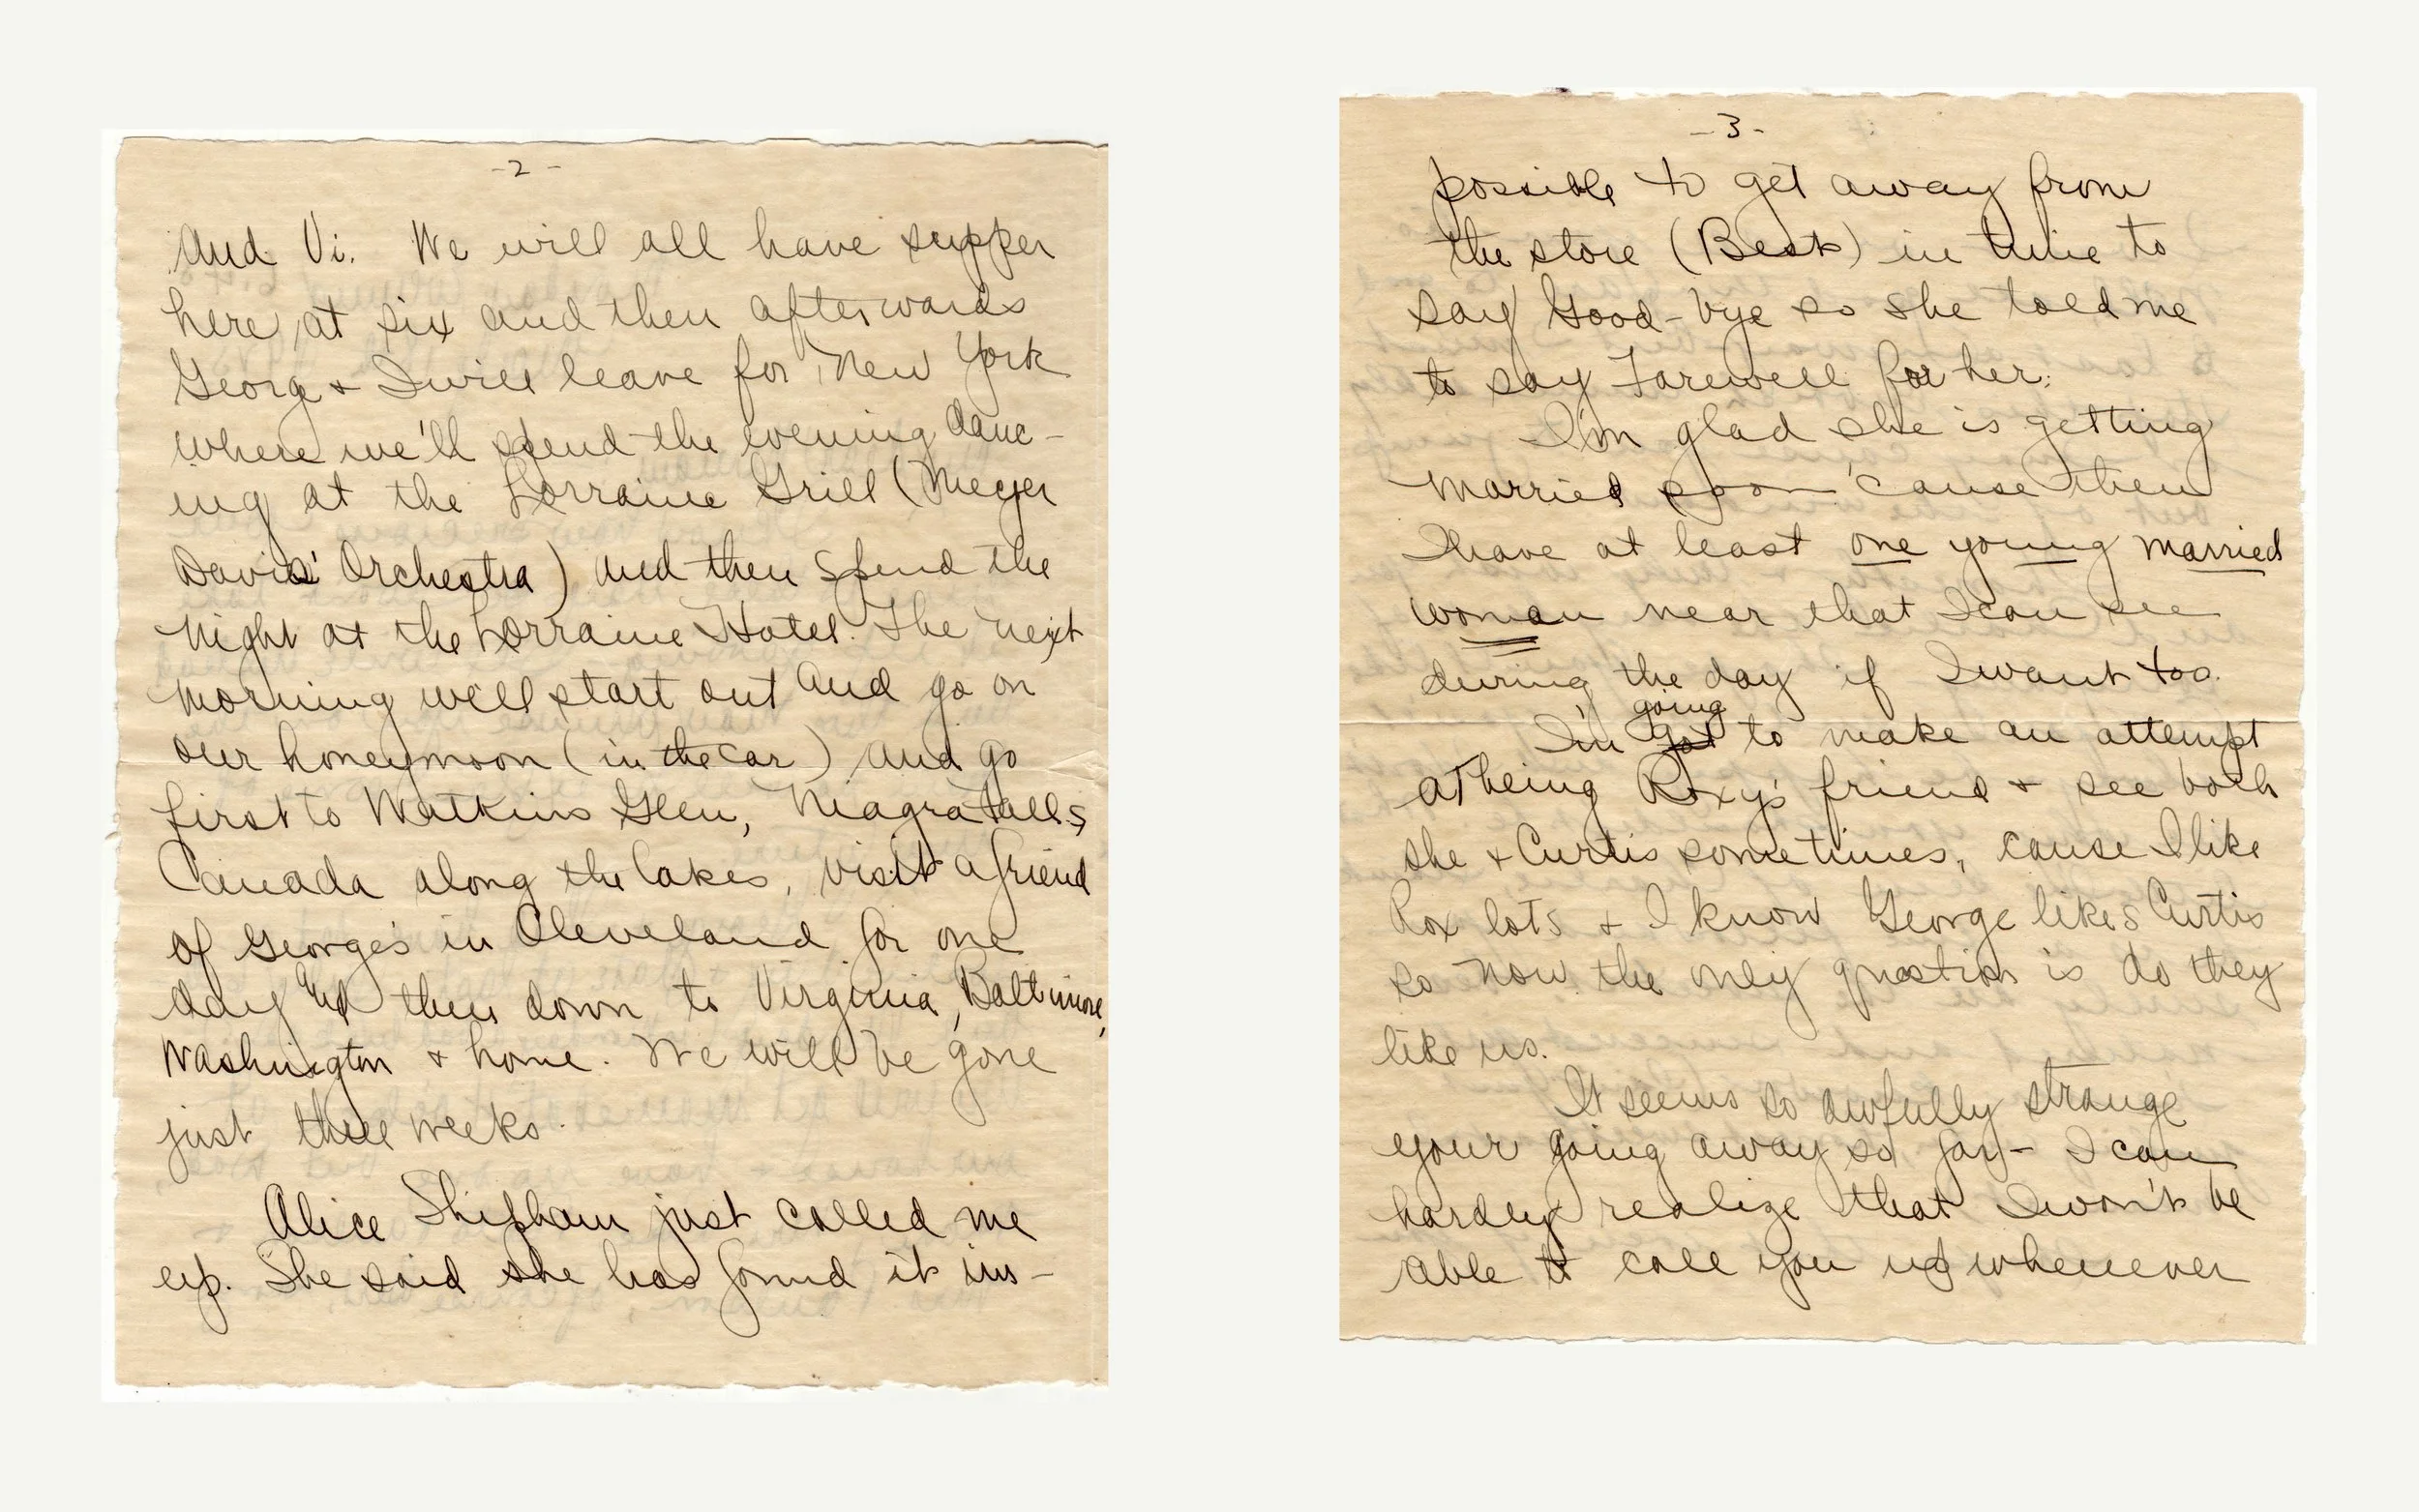 -2-
And Vi. We will all have supper
here at six and then afterwards
George & I will leave for New York
where we'll spend the evening danc-
ing at the Lorraine Grill (Meyer
Davis' Orchestra) and then spend the
night at the Lorraine Hotel. The next
morning we'll start out and go on
our honeymoon (in the car) and go
first to Watkins Glen, Niagra Falls,
Canada along the lakes, visit a friend
of George's in Cleveland for one
day and then down to Virginia, Baltimore,
Washington & home. We will be gone
just three weeks.
Alice Shipham just called me
up. She said she has found it im-
-3-
possible to get away from
the store (Best) in time to
say Good-bye so she told me
to say Farewell for her.
I'm glad she is getting
married soon 'cause then
I have at least one young married
woman near that I can see
during the day if I want too.
going
I'm got to make an attempt
at being Roxy's friend & see both
she & Curtis sometimes, cause I like
Rox lots & I know George likes Curtis
so now the only question is do they
like us.
It seems so awfully strange
your going away so far - I can
hardly realize that I won't be
able to call you up whenever